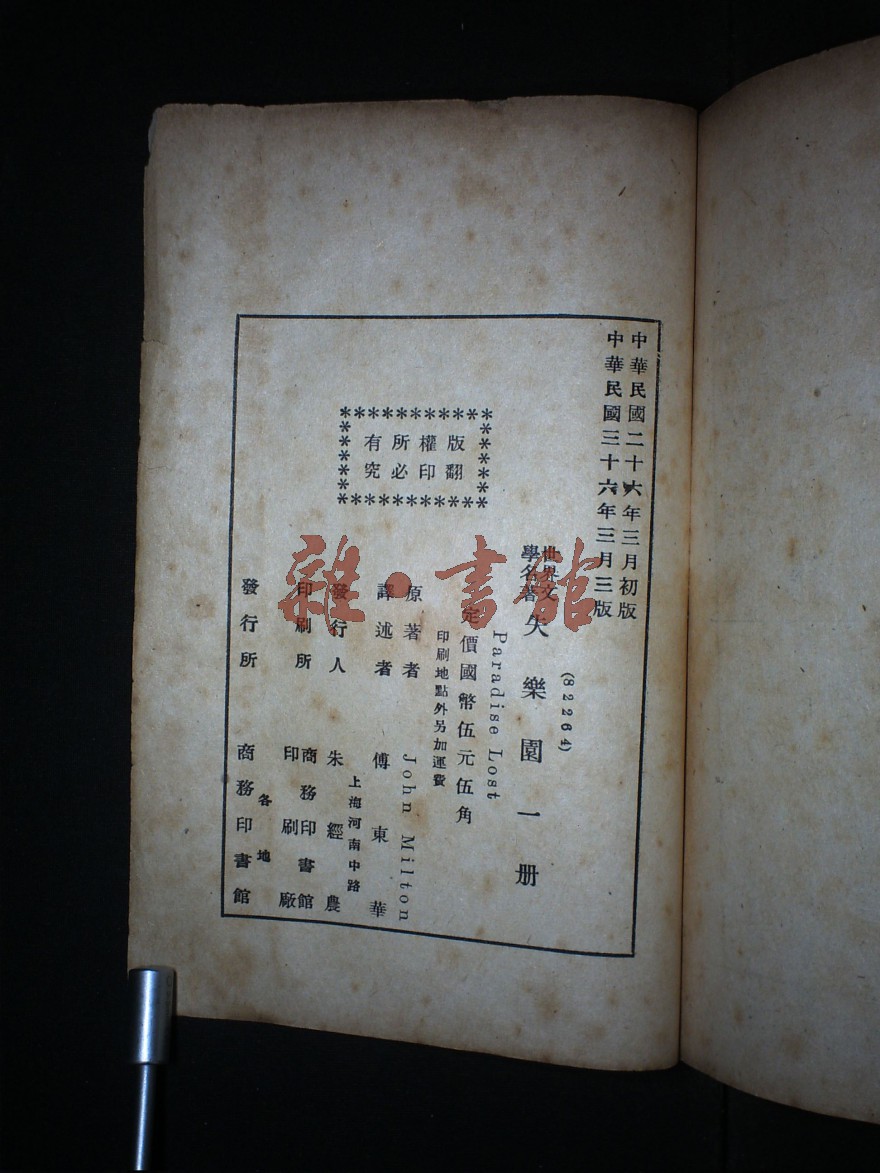 中華民國二十六年三月初版
中華民國三十六年三月三版
(82264)
世界文學名著 失樂園 一册
Paradise Lost
定價國幣伍元伍角
印刷地點外另加運費
原著者 John Milton
譯述者 傅東華
上海河南中路
發行人 朱經農
印刷所 商務印書館印刷廠
各地
發行所 商務印書館
版權所有
翻印必究
雜·書館